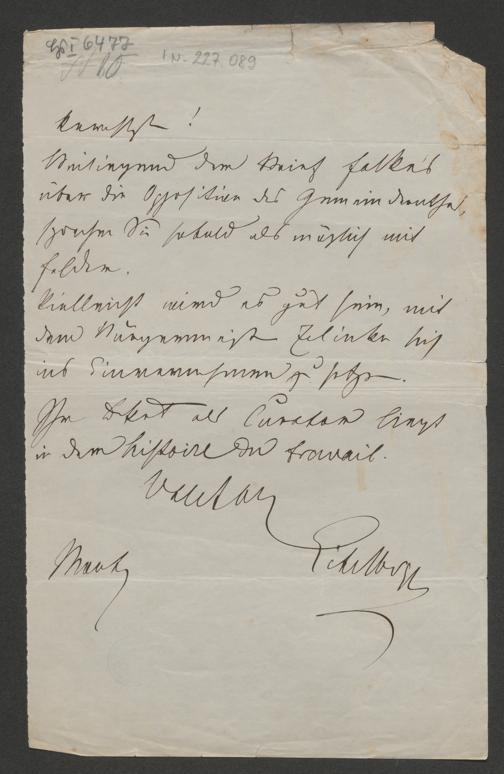 I 6477
I N. 227.089
Verehrtester!
Beiliegend den Brief Falke's
über die Opposition des Gemeinderathes,
sprechen Sie sobald als möglich mit
Felder.
Vielleicht wird es gut sein, mit
dem Bürgermeister Zelinka sich
ins Einvernehmen zu setzen.
Ihr Dekret als Curator liegt
in dem histoire du travail.
Eitelberger